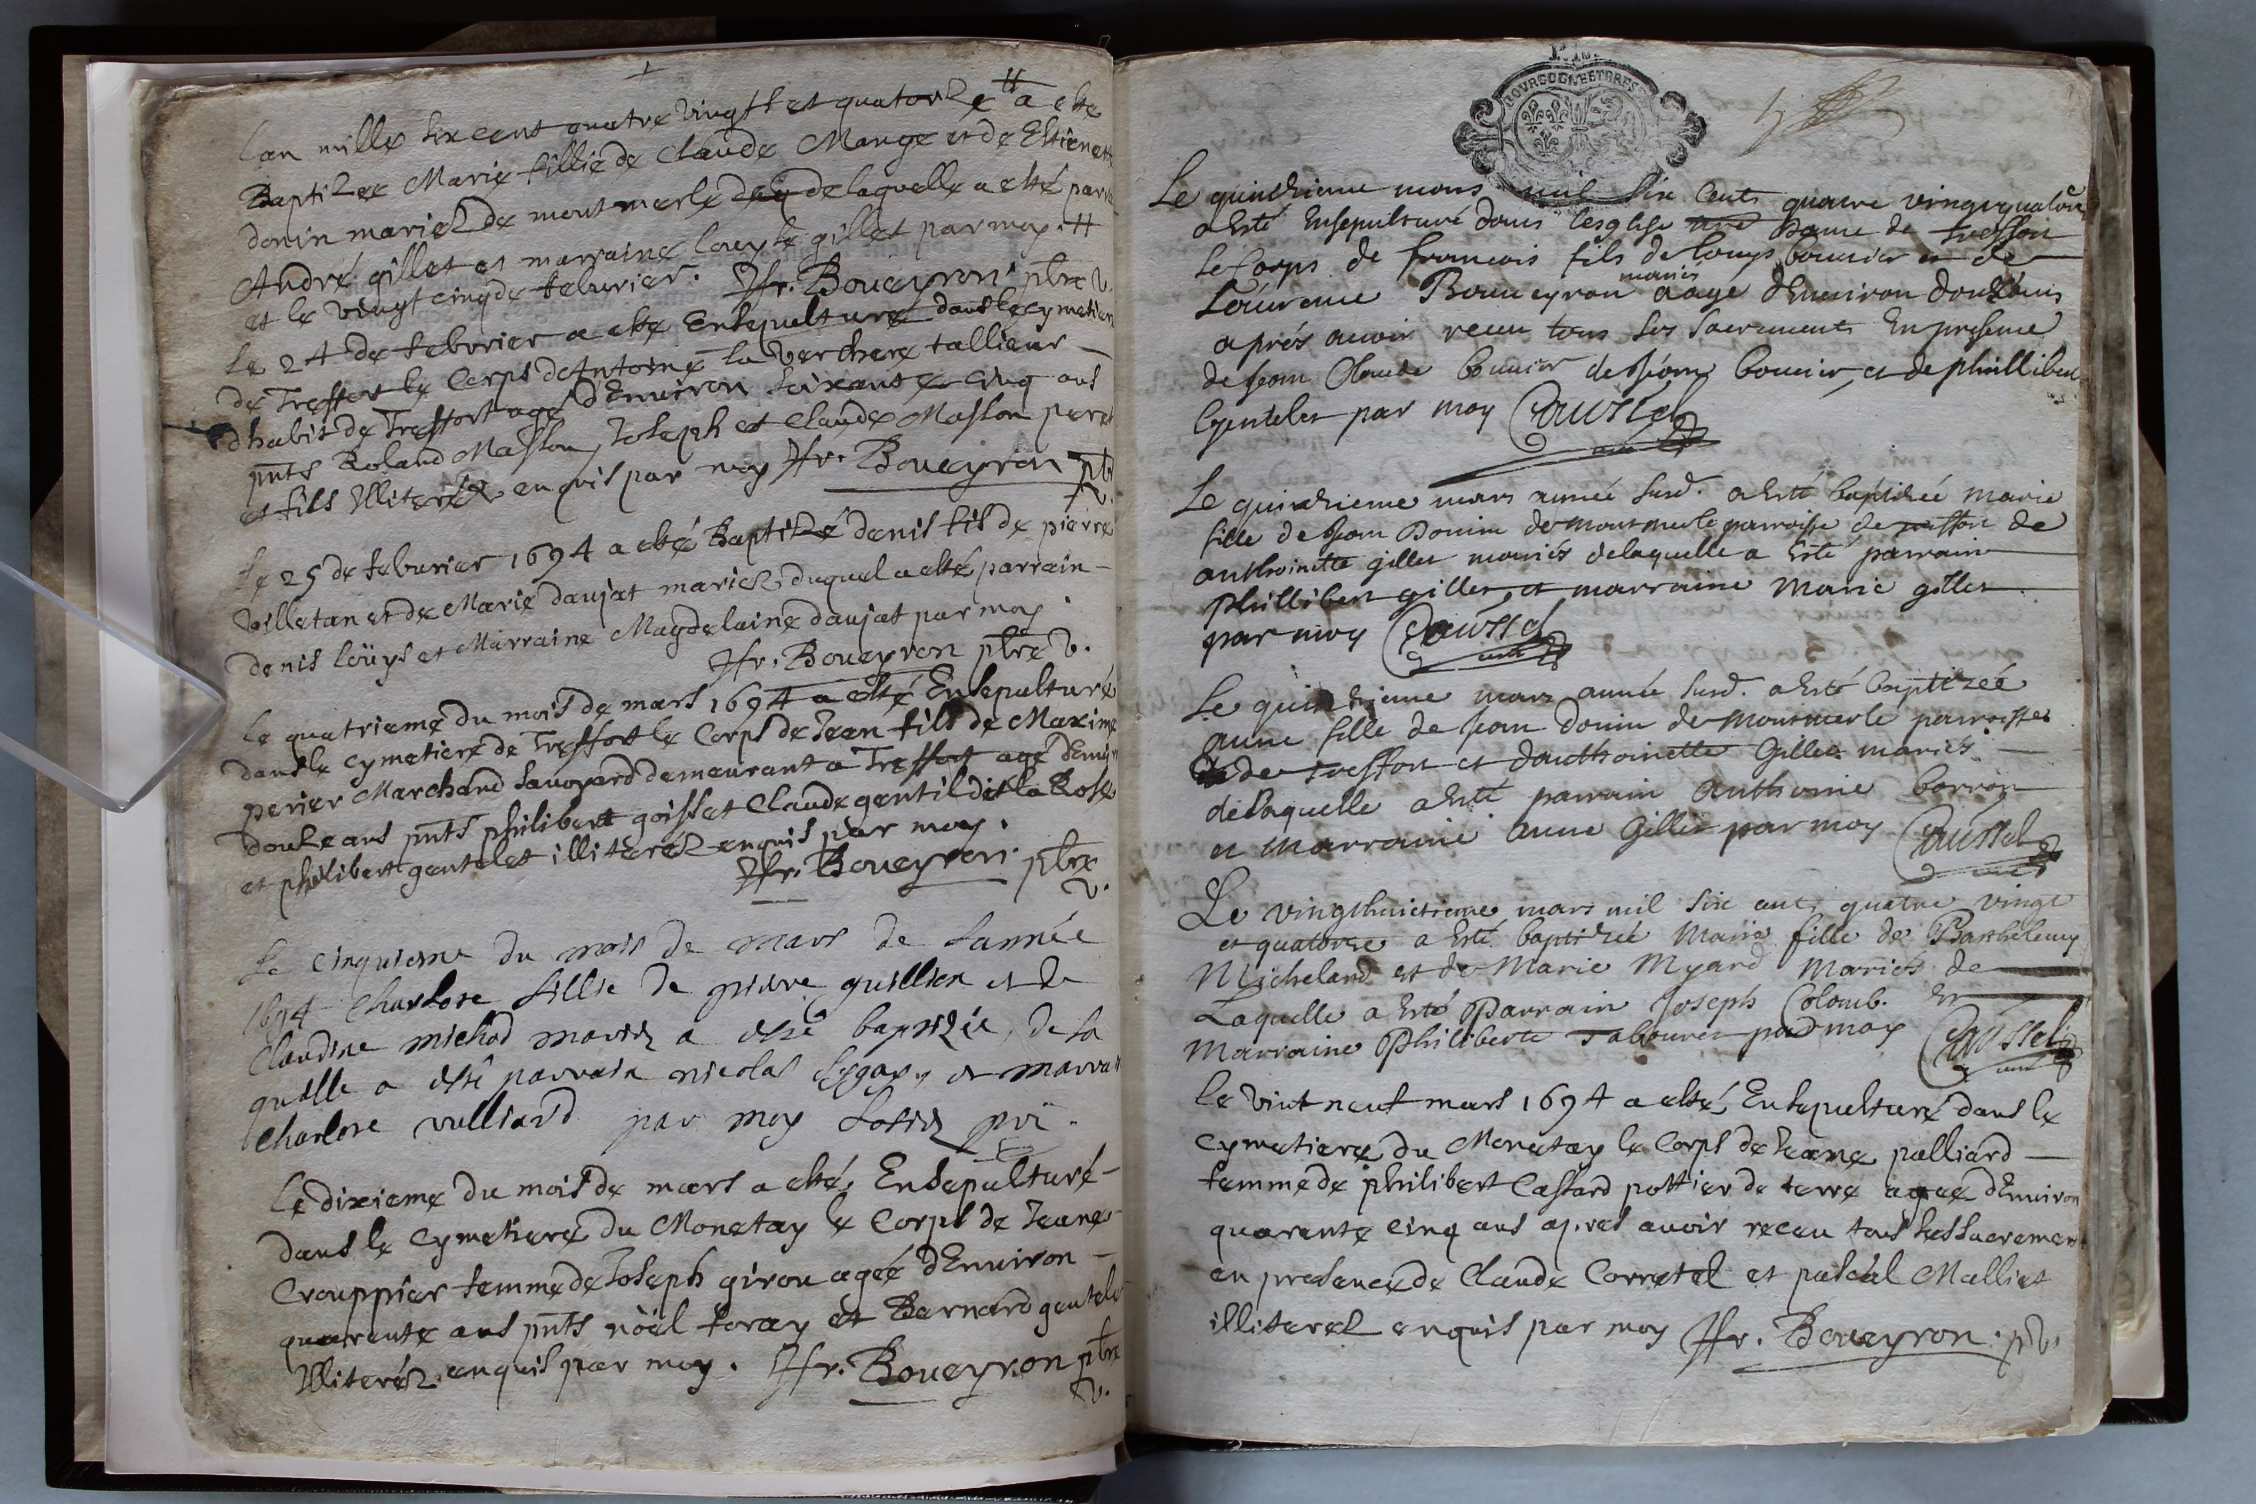 L'an mille six cent quatre vingt et quatorze # a este
Baptizée Marie fillie de Claude Mange et de Estienette
donin mariez de montmerle de laquelle a esté parrain
André gillet et marraine louyse gillet par moy. #
et le vingt cinq de feburier. Fr. Boueyron ptre v.
Le 24 de febvrier a esté Ensepulturé dans le cymetiere
de Treffort le Corps d'Antoine la Verchere tallieur
d'habit de Treffort agé d'Environ soixante cinq ans
pnts Roland Maslon, Joseph et Claude Maslon pere
et fils Illiterez enquis par moy Fr. Boueyron ptre
v.
Le 25 de feburier 1694 a esté Baptizé denis fils de pierre
villetan et de Marie daujat mariez, duquel a esté parrain
denis loüys et Marraine Magdelaine daujat par moy.
Fr. Boueyron ptre v.
Le quatrieme du mois de mars 1694 a esté Ensepulturé
dans le cymetiere de Treffort le Corps de Jean fils de Maxime
perier Marchand savoyard demeurant a Treffort agé d'Environ
douze ans pnts philibert goisset Claude gentil dit la Rose
et philibert gentelet illiterez enquis par moy.
Fr. Boueyron. ptre
v.
Le cinquiesme du mois de mars de l'année
1694 Charlote fillie de pierre guillien et de
Claudine michod mariez a esté baptizée, de la
quelle a esté parrain nicolas et marraine
Charlote vulliard par moy
Le dixieme du mois de mars a esté, Ensepulturé
dans le cymetiere du Monetay le Corps de Jeane
Crouppier femme de Joseph girou ageé d'Environ
quarente ans pnts nöel foray et Bernard gentelet
Illiteréz enquis par moy. Fr. Boueyron ptre
v.
BOVRGOGNE ET BRES
Le quinzieme mars mil six cents quatre vingt quatorze
a esté Ensepulturé dans l'esglise nre Dame de treffort
le Corps de francois fils de louys bouvier et de
Laurence Boueyron mariés aage d'Environ douze ans
aprés avoir receu tous ses sacrements En presence
de Jean Claude bouvier de Jean bouvier, et de phillibert
Gentelet par moy Caussel
Le quinzieme mars année susd. a esté baptizée marie
fille de Jean Donin de montmerle parroisse de treffort de
anthoinette gillet mariés de laquelle a esté parrain
Phillibert gillet, et marraine Marie gillet
par moy Caussel
Le quinzieme mars année susd. a esté baptizeé
anne fille de Jean donin de montmerle parroisse
de treffort et d'anthoinette Gillet mariés
de laquelle a esté parrain anthoine borron
et marraine anne Gillet par moy Caussel
Le vingthuictieme mars mil six cents quatre vingt
et quatorze a esté baptizée Marie fille de Barthelemy
Micheland et de Marie Myard Mariés de
Laquelle a esté Parrain Joseph Colomb. Et
Marraine Philiberte Tabouret par moy Caussel
Le vint neuf mars 1694 a esté, Ensepulturé dans le
cymetiere du Monetay le Corps de Jeane palliard
femme de philibert Castard pottier de terre ageé d'Environ
quarante cinq ans apres avoir receu tous ses sacrements
en presence de Claude Corretel et pascal Malliet
illiterez enquis par moy Fr. Boueyron. p v.